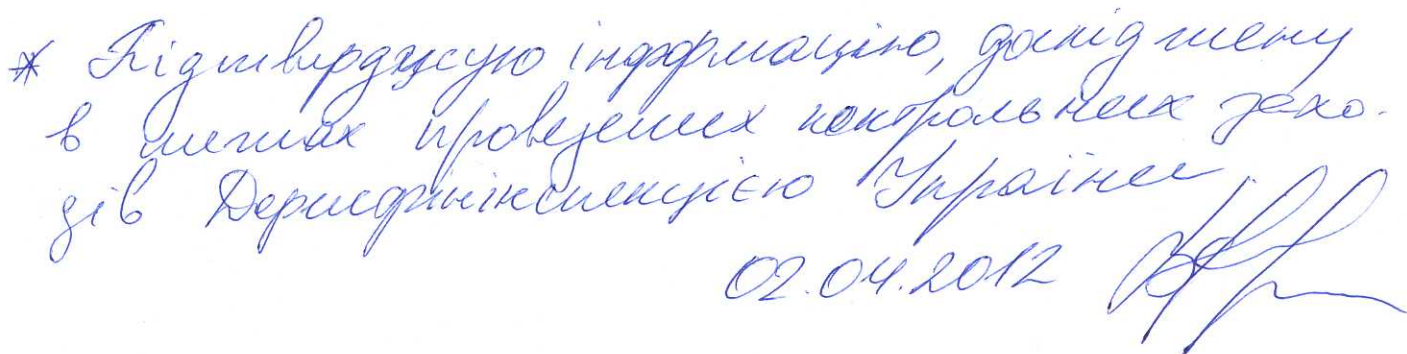 * Підтверджую інформацію, досліджену
в межах проведених контрольних захо-
дів Держфінінспекцією України
02.04.2012